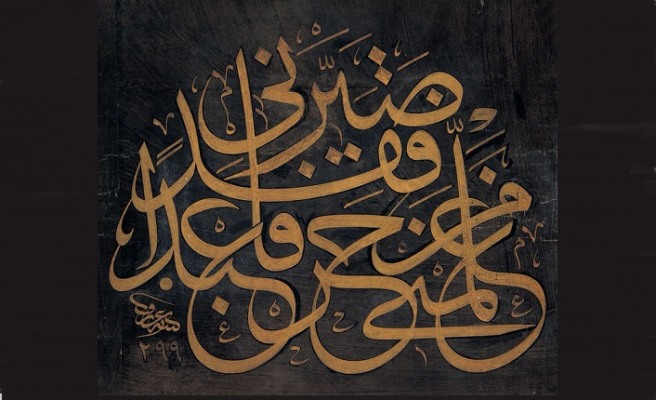 من علمني حرفا فقد صيرني عبدا
٢٩٩